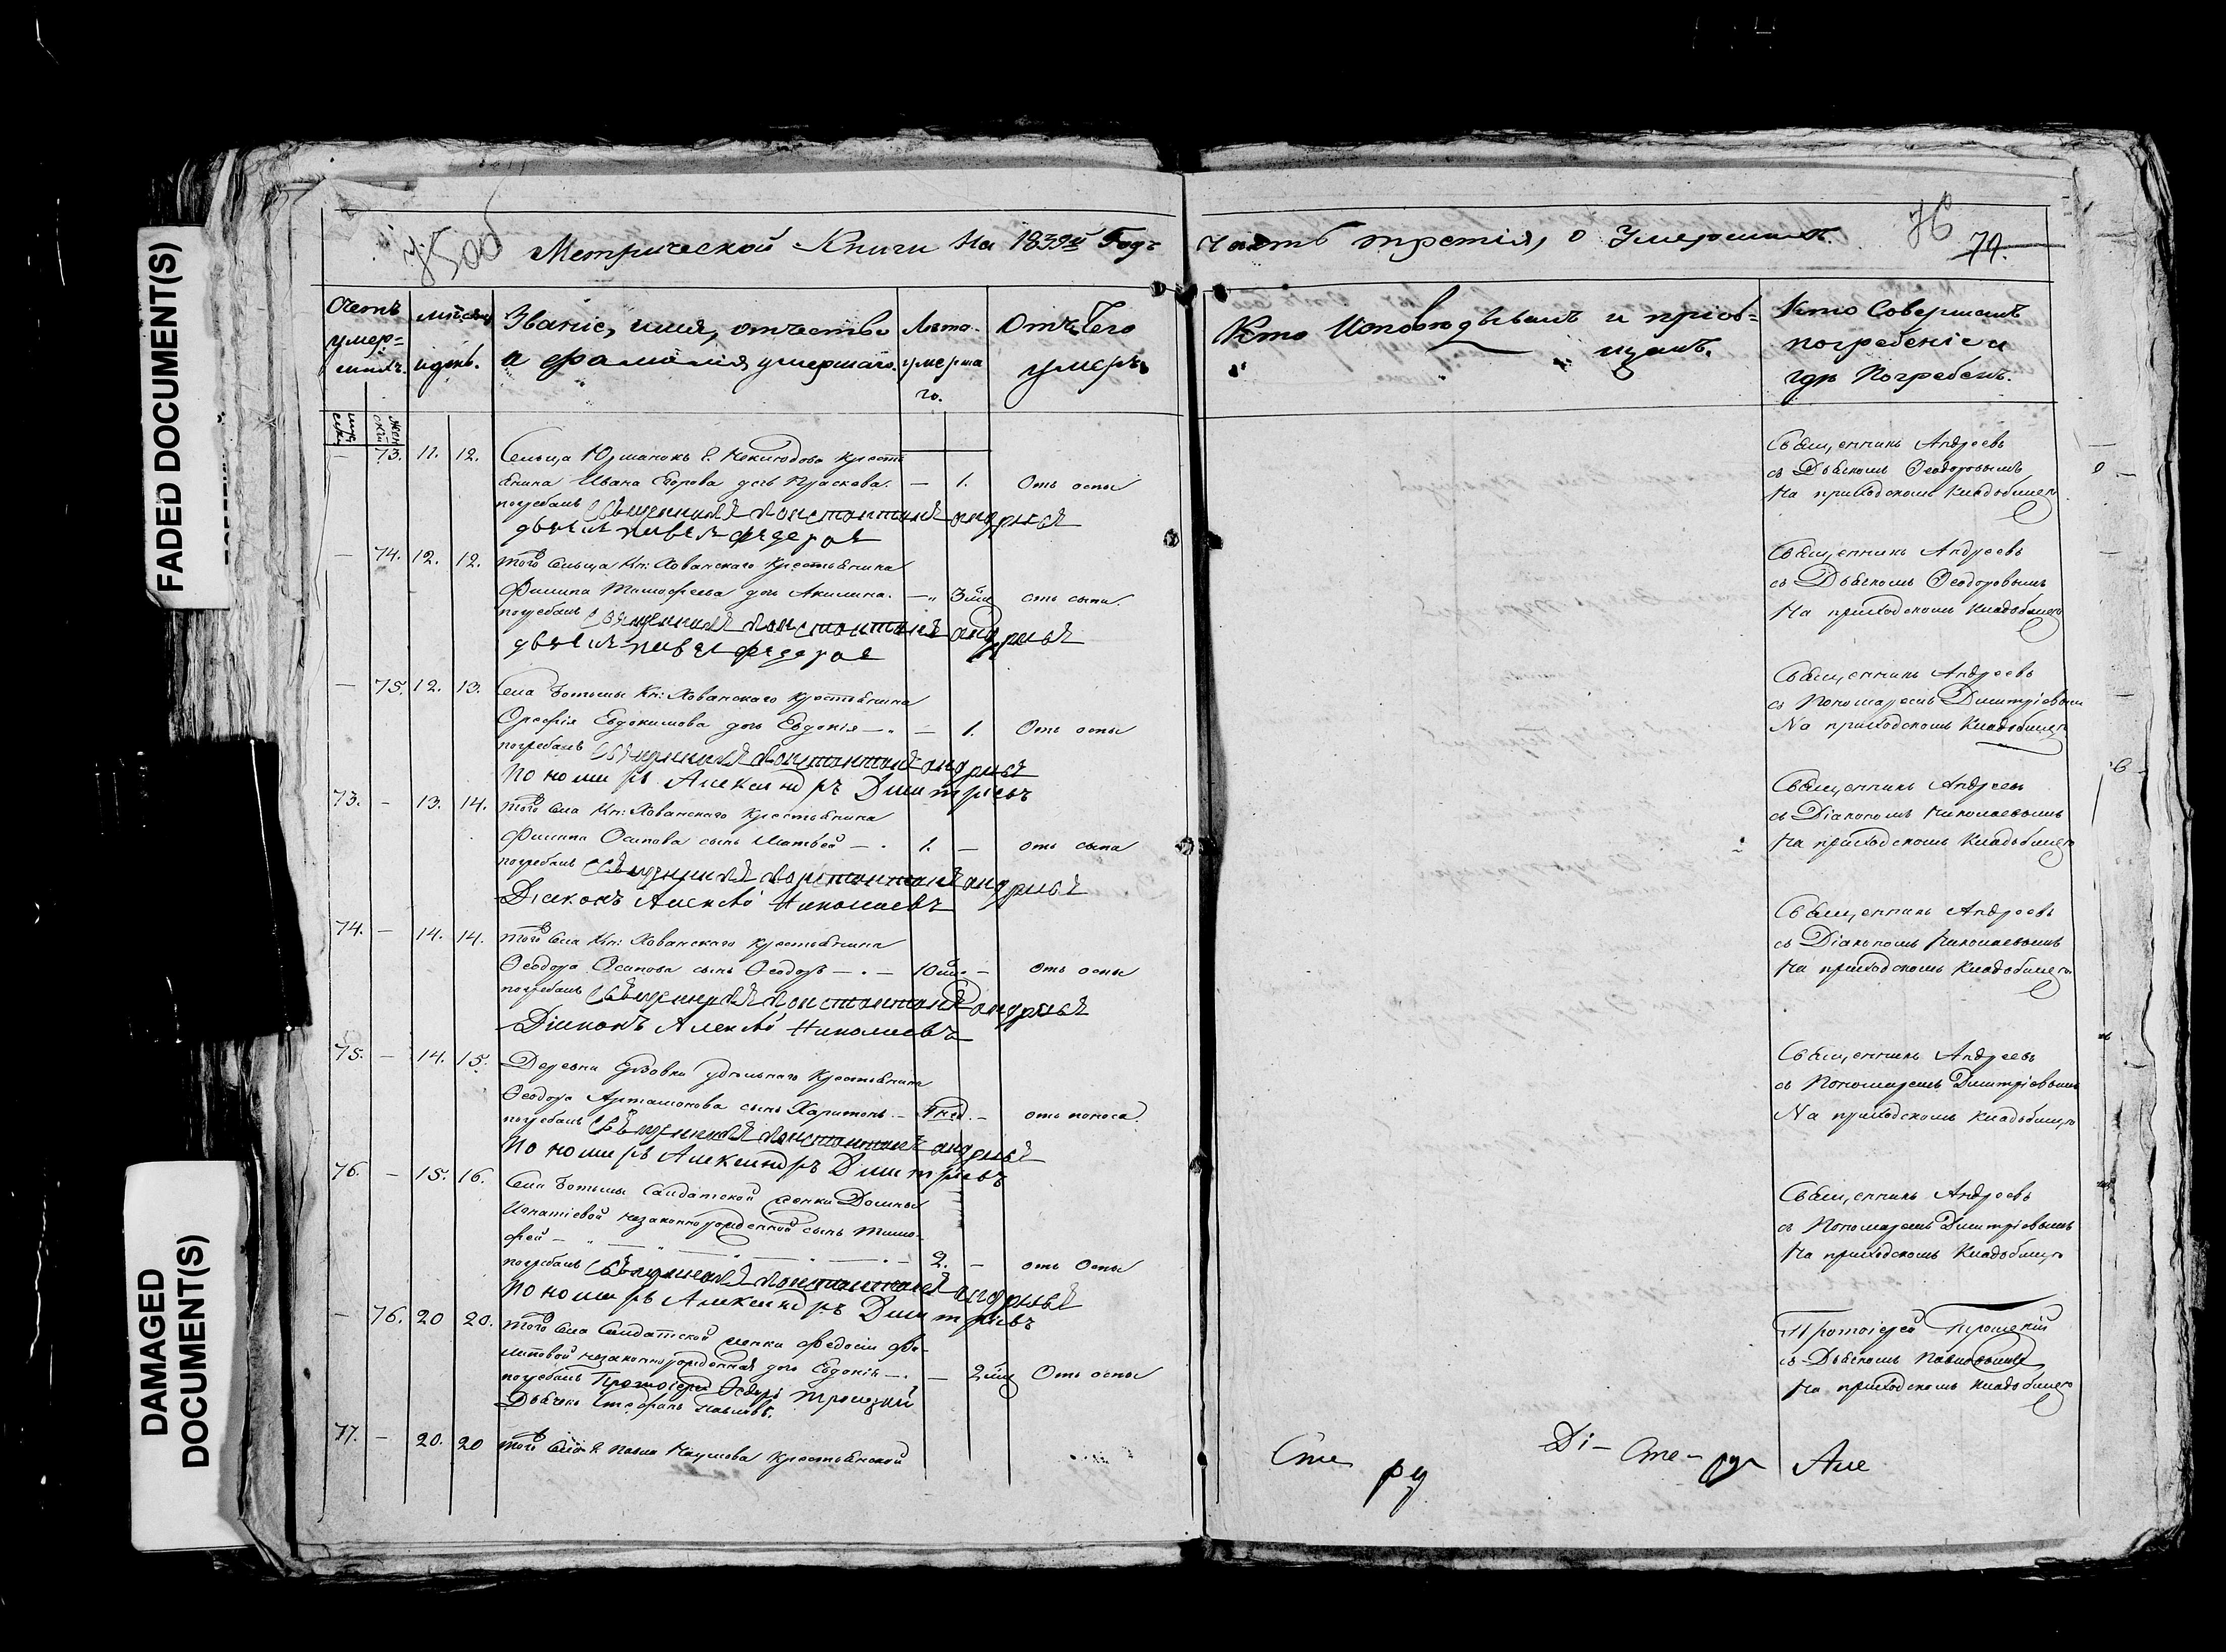 FADED DOCUMENT(S)
DAMAGED
DOCUMENT(S)
Метрической Книги на 1839й Годъ часть третія, о Умершихъ.
76
79.
Счетъ умер=шихъ.
мужеск
женскій
месяцъ и день.
Званіе, имя, отчество и фамилія умершаго.
Лѣта умершаго.
Отъ чего умеръ
Кто Исповѣдывалъ и пріоб=щалъ.
Кто Совершалъ погребеніе и гдѣ Погребенъ.
— 73. 11. 12. Сельца Юрманокъ Г. Неклюдова крестьянина Ивана Егорова дочь Праскева. — 1. Отъ оспы
погребалъ Священникъ Константинъ Андреевъ
дьячекъ Федоровъ
Священникъ Андреевъ
съ Дьячкомъ Ѳеодоровымъ
На приходскомъ кладбищѣ
— 74. 12. 12. того Сельца Кн: Хованскаго крестьянина
Филипа Тимофеева дочь Акилина. — 3 мѣц отъ сыпи.
погребалъ Священникъ Константинъ Андреевъ
дьячекъ Федоровъ
Священникъ Андреевъ
съ Дьячкомъ Ѳеодоровымъ
На приходскомъ кладбищѣ
— 75. 12. 13. Села Ботьмы Кн: Хованскаго крестьянина
Орефія Евдокимова дочь Евдокія — 1. Отъ оспы
погребалъ Священникъ Константинъ Андреевъ
Пономарь Александръ Димитріевъ
Священникъ Андреевъ
съ Пономаремъ Димитріевымъ
На приходскомъ кладбищѣ
73. — 13. 14. того Села Кн: Хованскаго крестьянина
Филипа Осипова сынъ Матвей — 1. — отъ сыпи
погребалъ Священникъ Константинъ Андреевъ
Діаконъ Алексѣй Николаевъ
Священникъ Андреевъ
съ Діакономъ Николаевымъ
На приходскомъ кладбищѣ
74. — 14. 14. того Села Кн: Хованскаго крестьянина
Ѳеодора Осипова сынъ Ѳеодоръ — 10 мѣц — отъ оспы
погребалъ Священникъ Константинъ Андреевъ
Діаконъ Алексѣй Николаевъ
Священникъ Андреевъ
съ Діакономъ Николаевымъ
На приходскомъ кладбищѣ
75. — 14. 15. Деревни удѣльнаго крестьянина
Ѳеодора Артамонова сынъ Харитонъ — нед. — отъ поноса.
погребалъ Священникъ Константинъ Андреевъ
Пономарь Александръ Димитріевъ
Священникъ Андреевъ
съ Пономаремъ Димитріевымъ
На приходскомъ кладбищѣ
76. — 15. 16. Села Ботьмы Салдатской женки Домны
Игнатіевой незаконнорожденной сынъ Тимо-
фей — 2. — отъ Оспы
погребалъ Священникъ Константинъ Андреевъ
Пономарь Александръ Димитріевъ
Священникъ Андреевъ
съ Пономаремъ Димитріевымъ
На приходскомъ кладбищѣ
— 76. 20 20. того Села Салдатской женки Федосіи Фи-
липовой незаконнорожденная дочь Евдокія — 2 мѣц Отъ оспы
погребалъ Протоіерей Ѳедоръ Троицкій
Дьячекъ Стефанъ Павловъ.
Протоіерей Троицкій
съ Дьячкомъ Павловымъ
На приходскомъ кладбищѣ
77. — 20. 20 того Села Г. Павла Наумова крестьянской
Сте ру Ді- Сте- ру Але